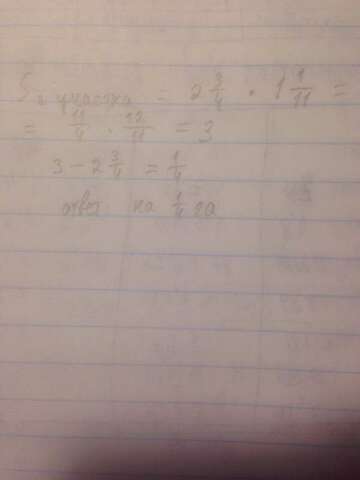 S участка = 2 3/4 · 1 1/11 =
= 11/4 · 12/11 = 3
3 - 2 3/4 = 1/4
ответ на 1/4 га